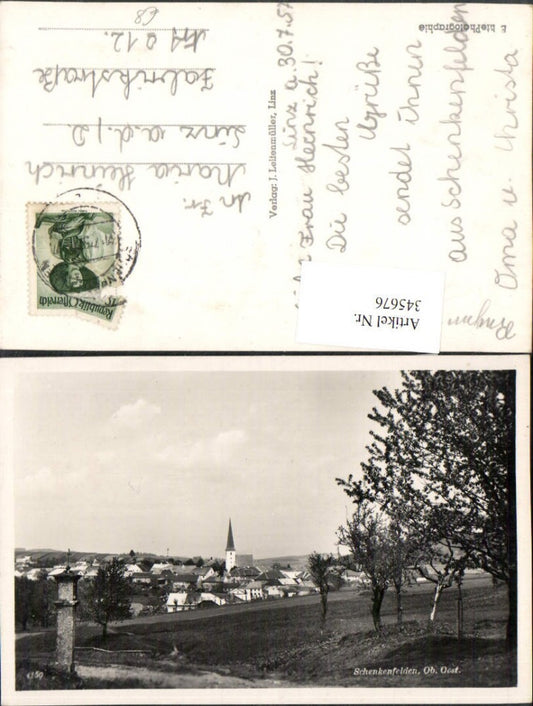 Linz a. 30.7.57
Frau Heinrich!
Die besten
Grüße
sendet Ihnen
aus Schenkenfelden
Oma u. Christa
Echte Photographie
Verlag: J. Leitenmüller, Linz
An Fr.
Maria Heinrich
Linz a.d./D
Fabrikstraße
Republik Österreich
Artikel Nr.
345676
Schenkenfelden, Ob. Oost.